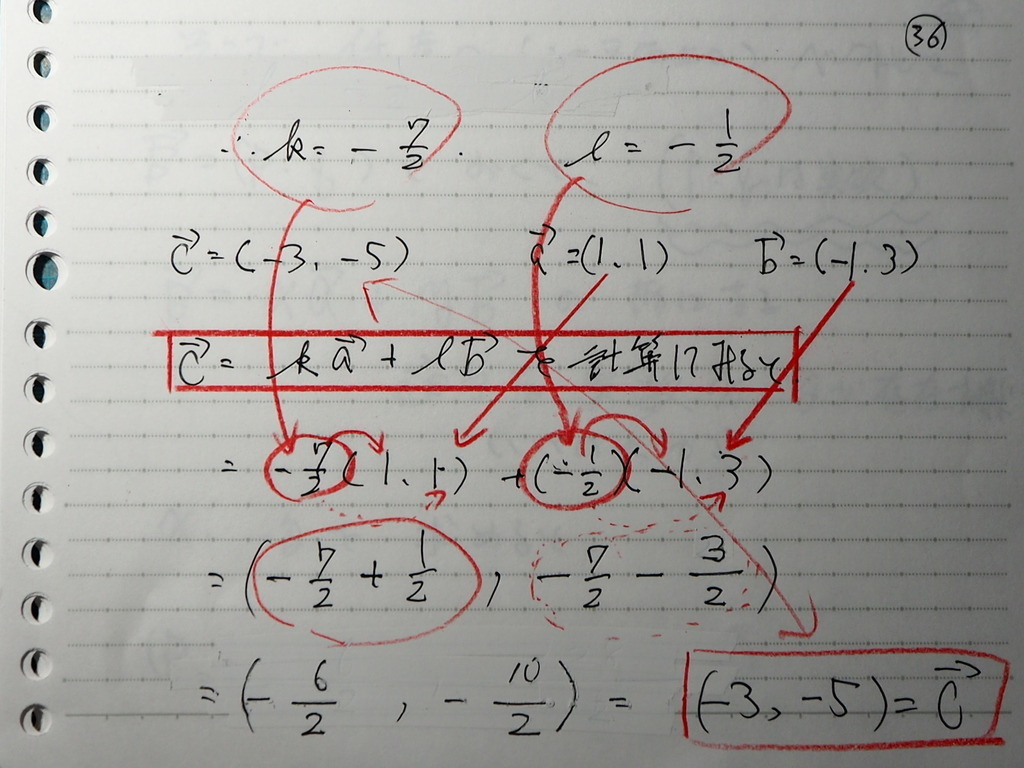 36
∴ k = - 7/2 . l = - 1/2
c⃗ = (-3, -5) a⃗ = (1, 1) b⃗ = (-1, 3)
c⃗ = k a⃗ + l b⃗ を 計算
= - 7/2 (1, 1) + (- 1/2)(-1, 3)
= (- 7/2 + 1/2 , - 7/2 - 3/2)
= (- 6/2 , - 10/2) = (-3, -5) = c⃗